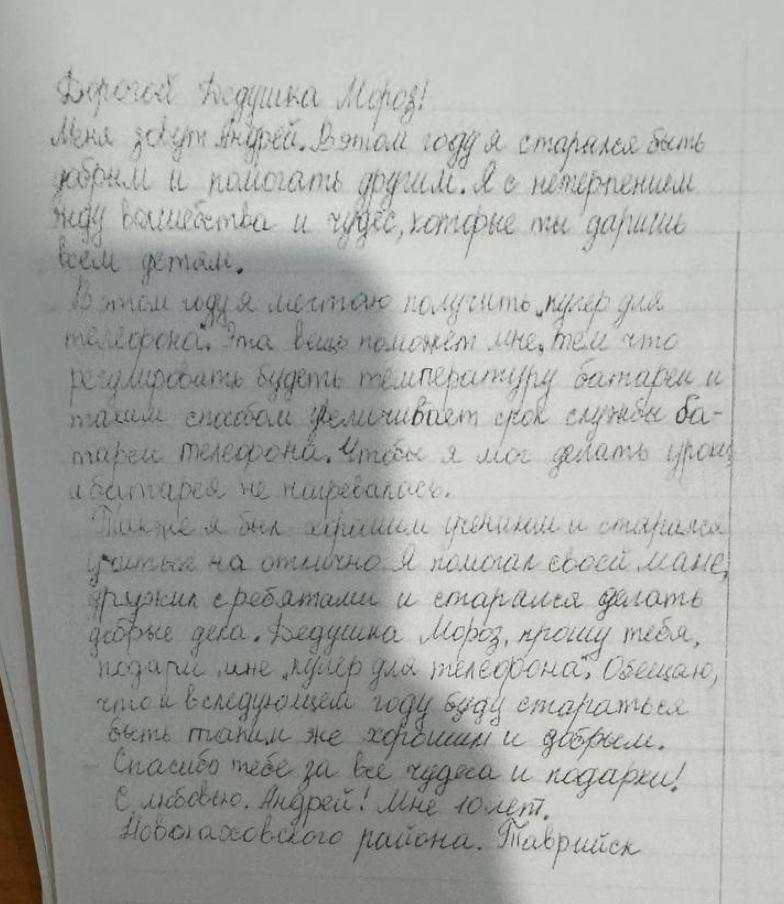 Дорогой Дедушка Мороз!
Меня зовут Андрей. В этом году я старался быть
добрым и помогать другим. Я с нетерпением
жду волшебства и чудес, которые ты даришь
всем детям.
В этом году я мечтаю получить „кулер для
телефона". Эта вещь поможет мне, тем что
регулировать будеть температуру батареи и
таким способом увеличивает срок службы ба-
тареи телефона. Чтобы я мог делать уроки,
и батарея не нагревалась.
Также я был хорошим учеником и старался
учиться на отлично. Я помогал своей маме,
дружил с ребятами и старался делать
добрые дела. Дедушка Мороз, прошу тебя,
подари мне „кулер для телефона". Обещаю,
что и в следующем году буду стараться
быть таким же хорошим и добрым.
Спасибо тебе за все чудеса и подарки!
С любовью. Андрей! Мне 10 лет.
района. Таврийск